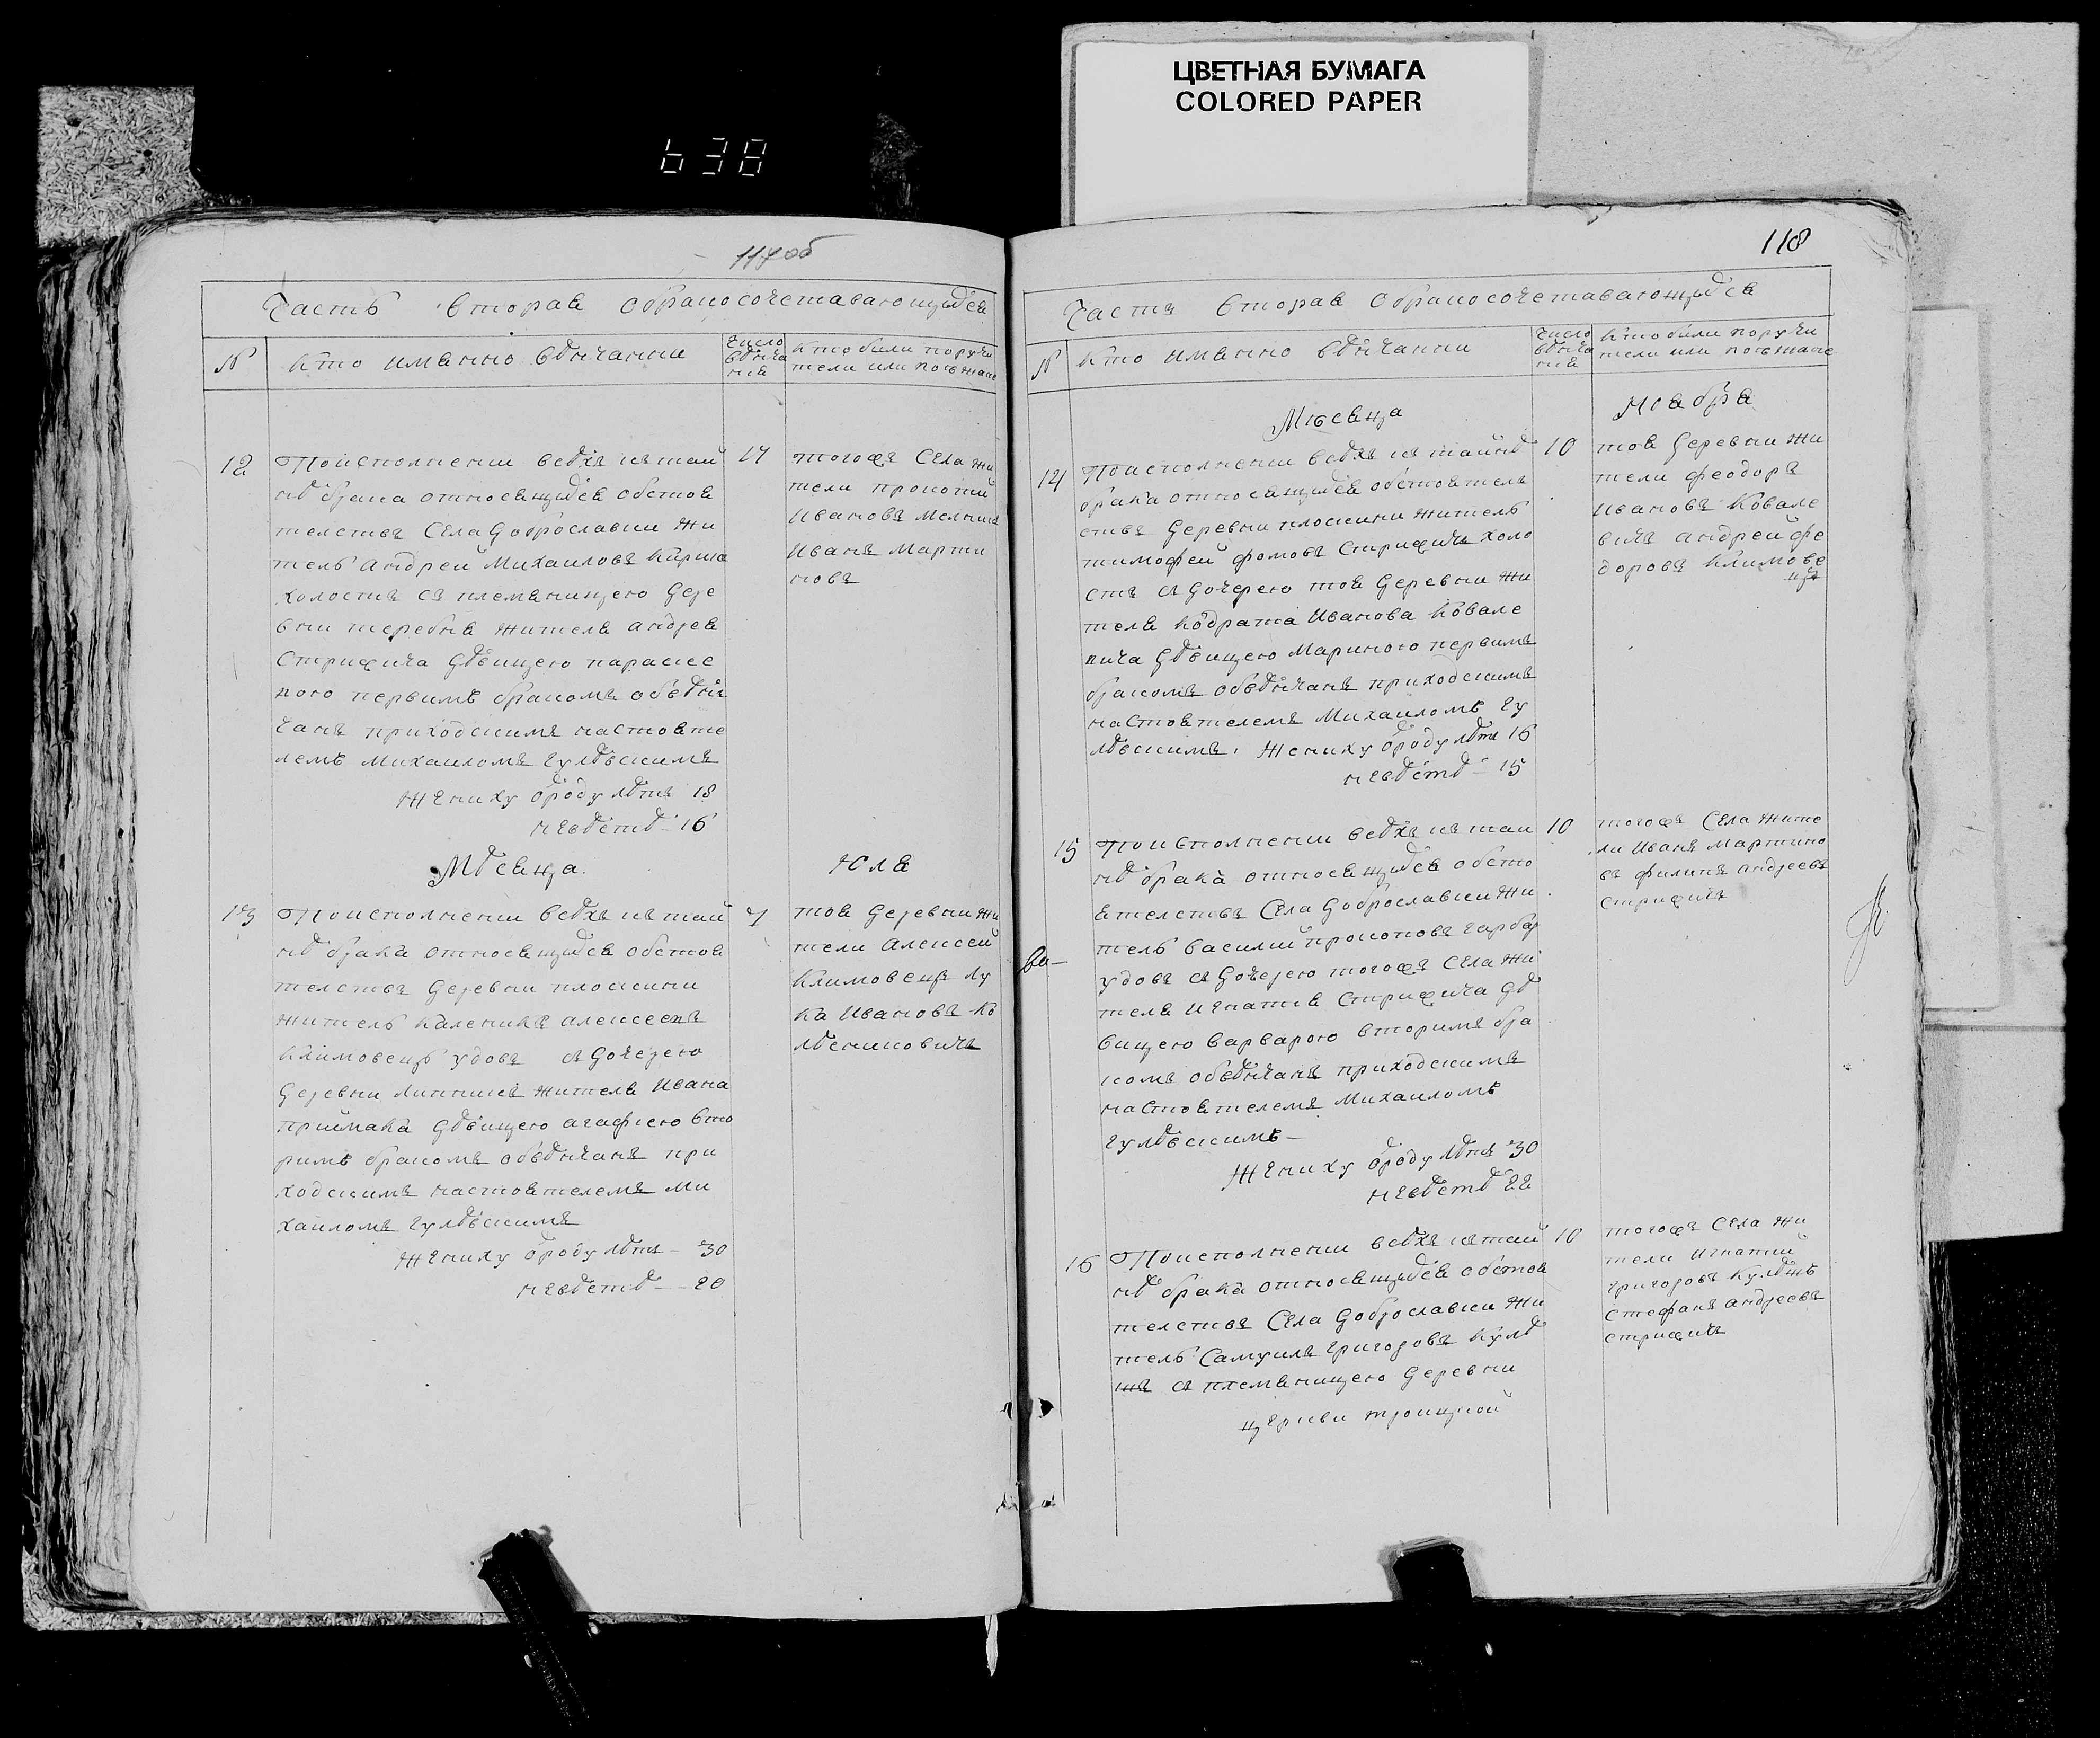 ЦВЕТНАЯ БУМАГА
COLORED PAPER
638
117об
Часть вторая о бракосочетавающихся
№
кто имянно вѣнчанни
число вѣнча ния
кто были поручи тели или поезжане
12
По исполнении всѣхъ къ тай
нѣ брака относящихся обстоя
телствъ Села Доброславки жи
тель Андрей Михаиловъ Кирша
холостъ съ племяницею Дере
вни теребня жителя андрея
Стрижича дѣвицею параске
вою первимъ бракомъ обвѣн
чанъ приходскимъ настояте
лемъ Михаиломъ Гулѣвскимъ
Жениху отроду лѣтъ 18
невѣстѣ - 16
17
тогожъ Села жи
тели прокопий
Ивановъ Мелник
Иванъ Марти
новъ
Мѣсяца
Юля
13
По исполнении всѣхъ къ тай
нѣ брака относящихся обстоя
телствъ Деревни плоскини
житель Каленикъ алексеевъ
Климовецъ удовъ съ дочерею
Деревни Липникъ жителя Ивана
приймака дѣвицею агафиею вто
римъ бракомъ обвѣнчанъ при
ходскимъ настоятелемъ Ми
хаиломъ Гулѣвскимъ
Жениху отроду лѣтъ - 30
невѣстѣ - 20
7
тоя Деревни жи
тели Алексей
Климовецъ Лу
ка Ивановъ Ко
лѣсниковичъ
118
Часть вторая о бракосочетавающихся
№
кто имянно вѣнчанни
число вѣнча ния
кто были поручи тели или поезжане
Мѣсяца
Ноября
14
По исполнении всѣхъ къ тайнѣ
брака относящихся обстоятель
ствъ Деревни плоскини житель
тимофей фомовъ Стрижичъ холо
стъ съ дочерею тоя Деревни жи
теля Кодрата Иванова Ковале
вича дѣвицею Мариною первимъ
бракомъ обвѣнчанъ приходскимъ
настоятелемъ Михаиломъ Гу
лѣвскимъ. Жениху отроду лѣтъ 16
невѣстѣ - 15
10
тоя Деревни жи
тели феодоръ
Ивановъ Ковале
вичъ андрей фе
доровъ Климове
цъ
15
По исполнении всѣхъ къ тай
нѣ брака относящихся обсто
ятелствъ Села Доброславки жи
тель василий прокоповъ гарбар
удовъ съ Дочерею тогожъ Села жи
теля игнатия Стрижича дѣ
вицею варварою вторимъ бра
комъ обвѣнчанъ приходскимъ
настоятелемъ Михаиломъ
Гулѣвскимъ -
Жениху отроду лѣтъ 30
невѣстѣ 22
10
тогожъ Села жите
ли Иванъ Мартино
въ филипъ андреевъ
стрижичъ
16
По исполнении всѣхъ къ тай
нѣ брака относящихся обстоя
телствъ Села Доброславки жи
тель Самуилъ Григоровъ Кулѣ
шъ съ племяницею Деревни
церкви троицкой
10
тогожъ Села жи
тели Игнатий
григоровъ Кулѣшъ
стефанъ андреевъ
стрижичъ